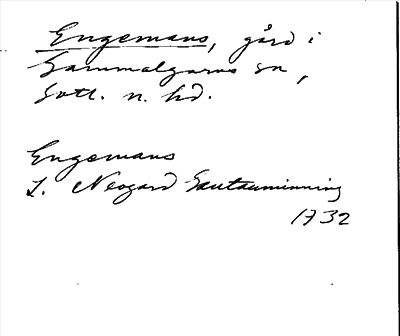 Engemans, gård i
Gammalgarns sn,
Gotl. n. hd.
Engemans
L. Neogard Gautauminning
1732